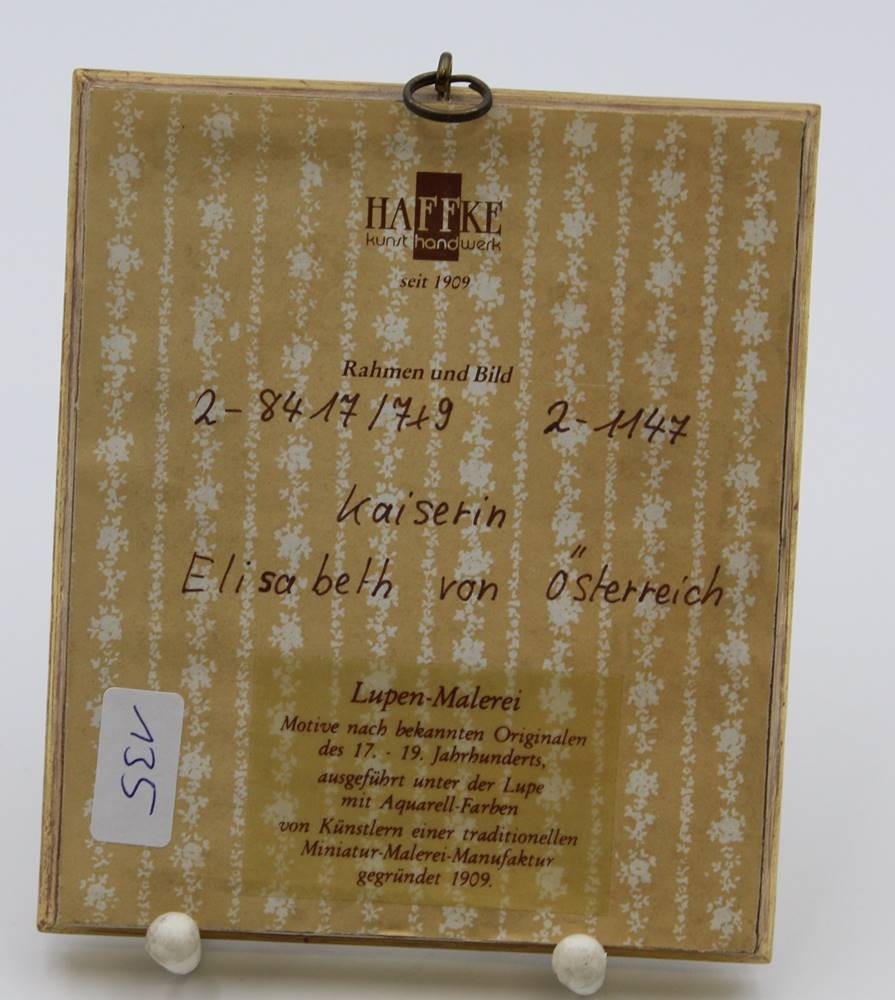 HAFFKE
kunsthandwerk
seit 1909
Rahmen und Bild
2-8417/7x9 2-1147
Kaiserin
Elisabeth von Österreich
Lupen-Malerei
Motive nach bekannten Originalen
des 17. - 19. Jahrhunderts,
ausgeführt unter der Lupe
mit Aquarell-Farben
von Künstlern einer traditionellen
Miniatur-Malerei-Manufaktur
gegründet 1909.
135